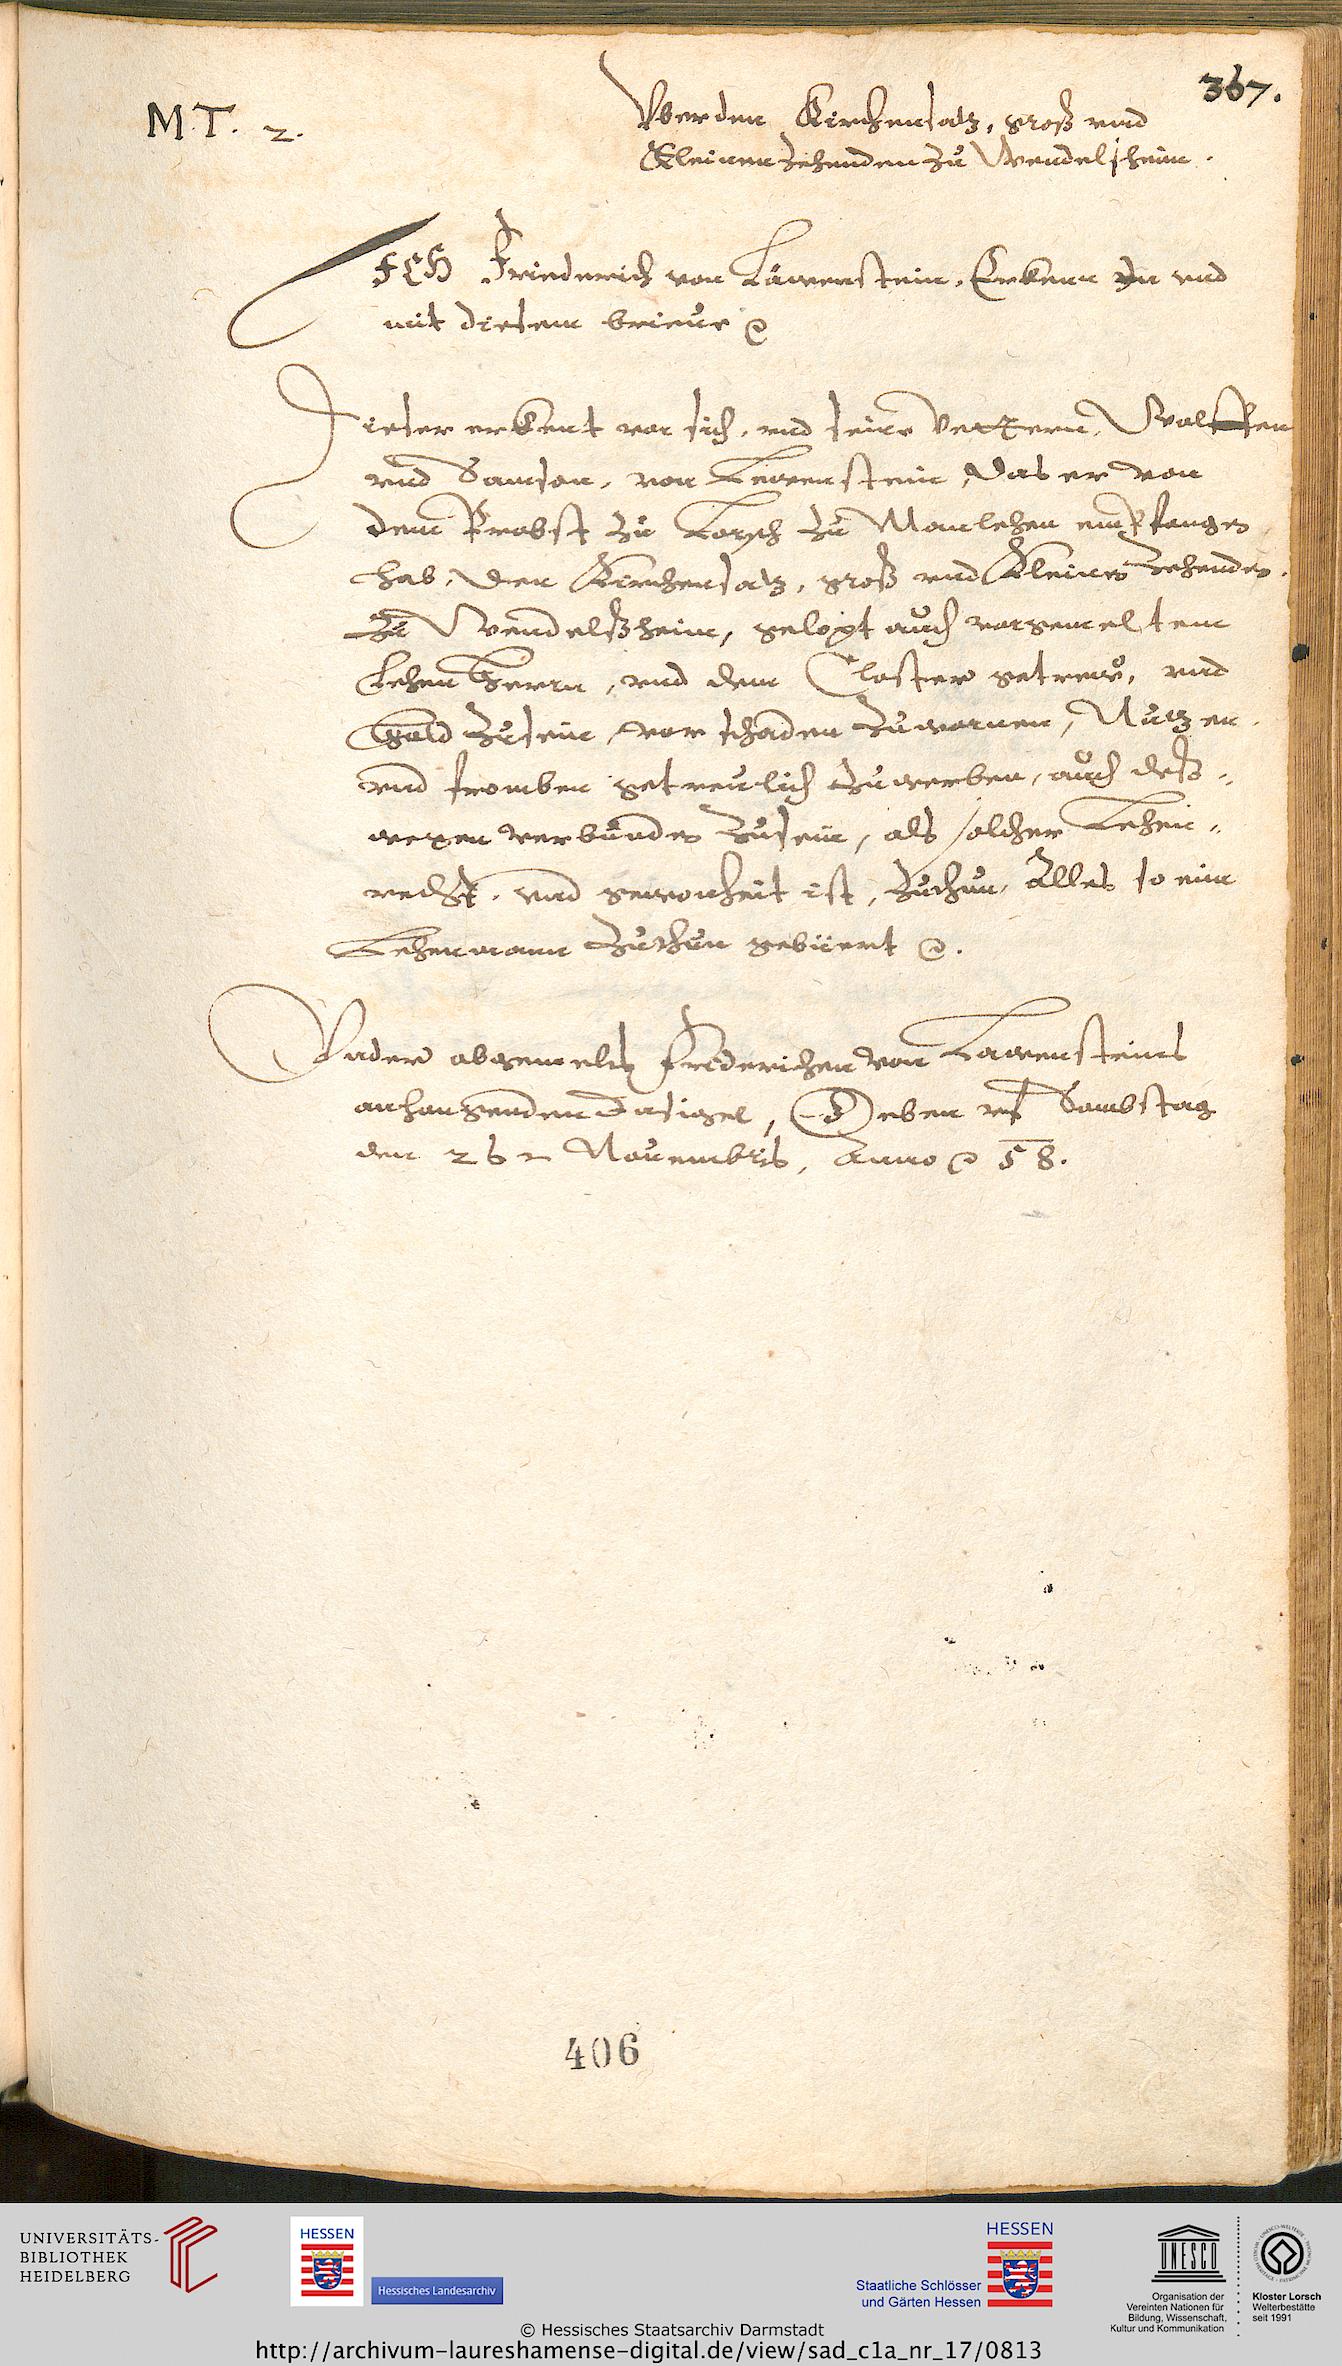 367.
M.T. 2.
Vber den Kirchensatz, groß vnd
Kleinen Zehenden zu Wendelsheim.
ICH Friederich von Läwenstein, Erkenn In vnd
mit diesem brieue
Dieser erkent vor sich, vnd seine Vettern, Wolffen
vnd Samson, von Lewenstein, Das er von
dem Probst zu Lorsch zu Manlehen empfangen
hab, Den Kirchensatz, groß vnd Kleines Zehenden,
zu Wendelßheim, gelopt auch vorgemeltem
Lehen Herrn, vnd dem Closter getrew, vnd
Hold zusein, vor schaden zuwarnen, Nutzen
vnd fromben getreulich zuwerben, auch deß-
wegen verbunden zusein, als solcher Lehen-
recht, vnd gewonheit ist, zuthun, Alles so ein
Lehenmann zuthun gebüert
Vnder obgemelts Friderichen von Lawensteins
anhangenden Insigel, Geben vf Sambstag
den 26 Nouembris, Anno 58.
406
UNIVERSITÄTS-
BIBLIOTHEK
HEIDELBERG
HESSEN
Hessisches Landesarchiv
HESSEN
Staatliche Schlösser
und Gärten Hessen
UNESCO
Organisation der
Vereinten Nationen für
Bildung, Wissenschaft,
Kultur und Kommunikation
Kloster Lorsch
Welterbestätte
seit 1991
© Hessisches Staatsarchiv Darmstadt
http://archivum-laureshamense-digital.de/view/sad_c1a_nr_17/0813